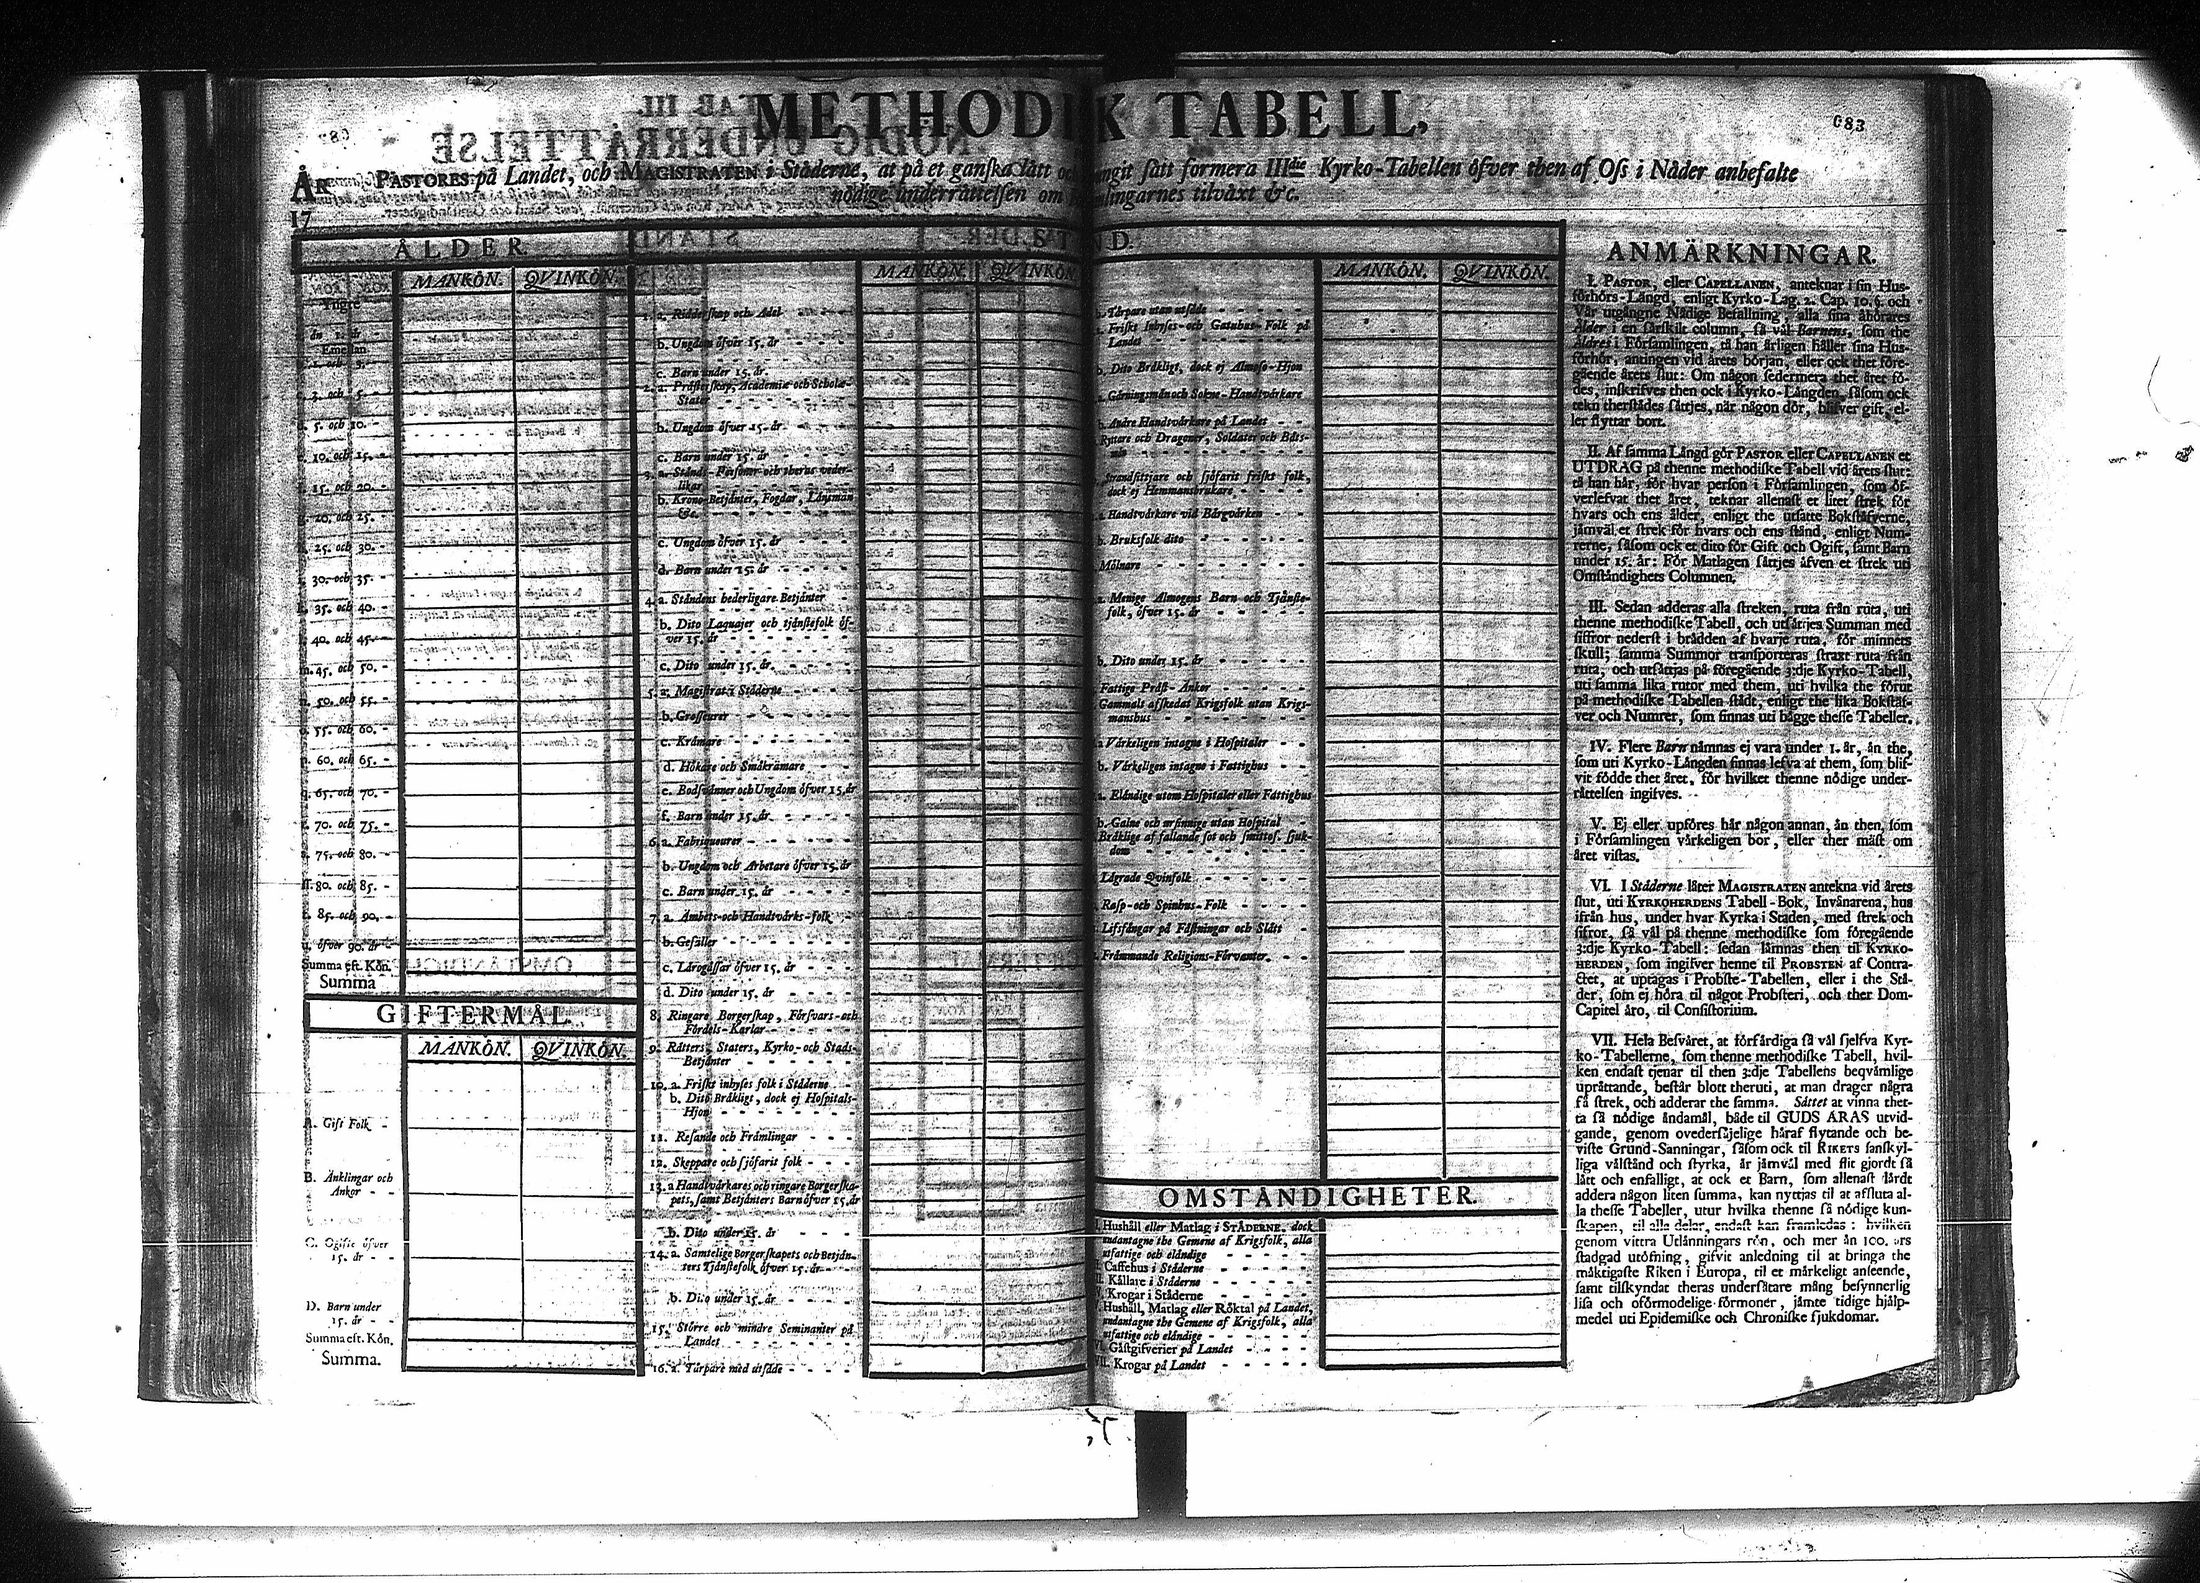 METHODIK TABELL,
683
ÅR PASTORES på Landet, och MAGISTRATEN i Städerne, at på et ganska lätt sätt formera IIIdie Kyrko-Tabellen öfver then af Oss i Nåder anbefalte
17
nödige underrättelsen om tilväxt &c.
ÅLDER.
MANKÖN. QVINKÖN.
Yngre
än 1. år
Emellan
1. och 3.
3. och 5.
5. och 10.
10. och 15.
15. och 20.
20. och 25.
25. och 30.
30. och 35.
35. och 40.
40. och 45.
45. och 50.
50. och 55.
55. och 60.
60. och 65.
65. och 70.
70. och 75.
75. och 80.
80. och 85.
85. och 90.
u. öfver 90. år
Summa eft. Kön.
Summa
GIFTERMÅL.
MANKÖN. QVINKÖN.
A. Gift Folk
B. Änklingar och
Änkor
C. Ogifte öfver
15. år
D. Barn under
15. år
Summa eft. Kön.
Summa.
STÅND.
MANKÖN. QVINKÖN
1. a. Ridderskap och Adel
b. Ungdom öfver 15. år
c. Barn under 15. år.
2. a. Prästerskap, Academiæ och Scholæ-
Stater
b. Ungdom öfver 15. år
c. Barn under 15. år
3. a. Stånds-Personer och theras veder-
likar
b. Krono-Betjänter, Fogdar, Länsmän
&c.
c. Ungdom öfver 15. år
d. Barn under 15. år
4. a. Ståndens bederligare Betjänter
b. Dito Laquajer och tjänstefolk öf-
ver 15. år
c. Dito under 15. år.
5. a. Magistrat i Städerne
b. Grosseurer
c. Krämare
d. Hökare och Småkrämare
e. Bodsvänner och Ungdom öfver 15. år
f. Barn under 15. år.
6. a. Fabriqueurer
b. Ungdom och Arbetare öfver 15. år
c. Barn under 15. år
7. a. Ämbets- och Handtvärks-folk
b. Gesäller
c. Lärogåssar öfver 15. år
d. Dito under 15. år
8. Ringare Borgerskap, Försvars- och
Fördels-Karlar
9. Rätters, Staters, Kyrko- och Stads-
Betjänter
10. a. Friskt inhyses folk i Städerne
b. Dito Bräkligt, dock ej Hospitals-
Hjon
11. Resande och Främlingar
12. Skeppare och sjöfarit folk
13. a Handtvärkares och ringare Borgerska-
pets, samt Betjänters Barn öfver 15. år
b. Dito under 15. år
14. a. Samtelige Borgerskapets och Betjän-
ters Tjänstefolk öfver 15. år
b. Dito under 15. år
15. Större och mindre Seminanter på
Landet
16. a. Torpare med utsäde
MANKÖN. QVINKÖN.
b. Torpare utan utsäde
Friskt Inhyses- och Gatuhus-Folk på
Landet
b. Dito Bräkligt, dock ej Almoso-Hjon
Gärningsmän och Sokne-Handtvärkare
b. Andre Handtvärkare på Landet
Ryttare och Dragoner, Soldater och Båts-
män
Strandsittjare och sjöfarit friskt folk,
dock ej Hemmansbrukare
a Handtvärkare vid Bärgvärken
b. Bruksfolk dito
Mölnare
a. Menige Almogens Barn och Tjänste-
folk, öfver 15. år
b. Dito under 15. år
Fattige Präst-Änkor
Gammalt afskedat Krigsfolk utan Krigs-
manshus
a Värkeligen intagne i Hospitaler
b. Värkeligen intagne i Fattighus
a. Eländige utom Hospitaler eller Fattighus
b. Galne och ursinnige utan Hospital
Bräklige af fallande sot och smittos. sjuk-
dom
Lägrade Qvinfolk
Rasp- och Spinhus-Folk
Lifsfångar på Fästningar och Slått
Främmande Religions-Förvanter.
OMSTÄNDIGHETER.
I. Hushåll eller Matlag i STÄDERNE, dock
undantagne the Gemene af Krigsfolk, alla
utfattige och eländige
Caffehus i Städerne
Källare i Städerne
Krogar i Städerne
Hushåll, Matlag eller Röktal på Landet,
undantagne the Gemene af Krigsfolk, alla
utfattige och eländige
Gästgifverier på Landet
VII. Krogar på Landet
ANMÄRKNINGAR.
I. PASTOR, eller CAPELLANEN, antecknar i sin Hus-
förhörs-Längd, enligt Kyrko-Lag. 2. Cap. 10. §. och
Vår utgångne Nådige Befallning, alla sina åhörares
Ålder i en särskilt column, så väl Barnens, som the
Äldres i Församlingen, tå han årligen håller sina Hus-
förhör, antingen vid årets början, eller ock thet före-
gående årets slut: Om någon sedermera thet året fö-
des, inskrifves then ock i Kyrko-Längden, såsom ock
tekn therstädes sättjes, när någon dör, blifver gift, el-
ler flyttar bort.
II. Af samma Längd gör PASTOR eller CAPELLANEN et
UTDRAG på thenne methodiske Tabell vid årets slut:
tå han här, för hvar person i Församlingen, som öf-
verlefvat thet året, teknar allenast et litet strek för
hvars och ens ålder, enligt the utsatte Bokstäfverne,
jämväl et strek för hvars och ens stånd, enligt Num-
rerne, såsom ock et dito för Gift och Ogift, samt Barn
under 15. år: För Matlagen sättjes äfven et strek uti
Omständighets Columnen.
III. Sedan adderas alla streken, ruta från ruta, uti
thenne methodiske Tabell, och utsättjes Summan med
siffror nederst i brädden af hvarje ruta, för minnets
skull; samma Summor transporteras straxt ruta från
ruta, och utsättjas på föregående 3:dje Kyrko-Tabell,
uti samma lika rutor med them, uti hvilka the förut
på methodiske Tabellen städt, enligt the lika Bokstäf-
ver och Numrer, som finnas uti bägge thesse Tabeller.
IV. Flere Barn nämnas ej vara under 1. år, än the,
som uti Kyrko-Längden finnas lefva at them, som blif-
vit födde thet året, för hvilket thenne nödige under-
rättelsen ingifves.
V. Ej eller upföres här någon annan, än then, som
i Församlingen värkeligen bor, eller ther mäst om
året vistas.
VI. I Städerne låter MAGISTRATEN antekna vid årets
slut, uti KYRKOHERDENS Tabell-Bok, Invånarena, hus
ifrån hus, under hvar Kyrka i Staden, med strek och
sifror, så väl på thenne methodiske som föregående
3:dje Kyrko-Tabell: sedan lämnas then til KYRKO-
HERDEN, som ingifver henne til PROBSTEN af Contra-
ctet, at uptagas i Probste-Tabellen, eller i the Stä-
der, som ej höra til något Probsteri, och ther Dom-
Capitel äro, til Consistorium.
VII. Hela Besväret, at förfärdiga så väl sjelfva Kyr-
ko-Tabellerne, som thenne methodiske Tabell, hvil-
ken endast tjenar til then 3:dje Tabellens beqvämlige
uprättande, består blott theruti, at man drager några
få strek, och adderar the samma. Sättet at vinna thet-
ta så nödige ändamål, både til GUDS ÄRAS utvid-
gande, genom ovedersäjelige häraf flytande och be-
viste Grund-Sanningar, såsom ock til RIKETS sanskyl-
liga välstånd och styrka, är jämväl med flit gjordt så
lätt och enfalligt, at ock et Barn, som allenast lärdt
addera någon liten summa, kan nyttjas til at afsluta al-
la thesse Tabeller, utur hvilka thenne så nödige kun-
skapen, til alla delar, endast kan framledas: hvilken
genom vittra Utlänningars rön, och mer än 100. års
stadgad utöfning, gifvit anledning til at bringa the
mäktigaste Riken i Europa, til et märkeligt anseende,
samt tilskyndat theras undersåtare mång besynnerlig
lisa och oförmodelige förmoner, jämte tidige hjälp-
medel uti Epidemiske och Chroniske sjukdomar.